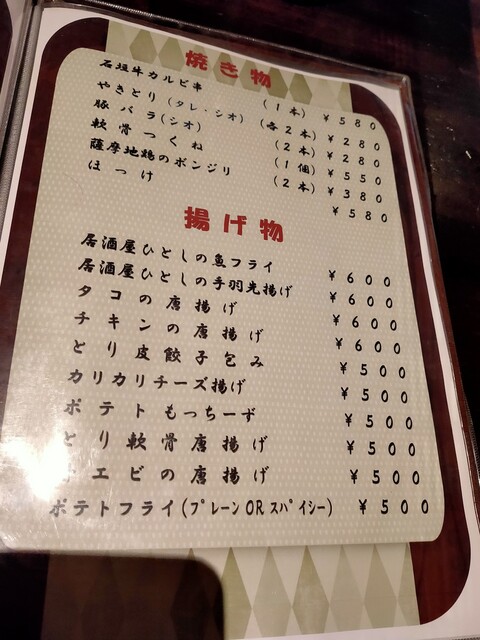 焼き物
石垣牛カルビ串 (1本) ¥580
やきとり(タレ・シオ) (各2本) ¥280
豚バラ(シオ) (2本) ¥280
軟骨つくね (1個) ¥550
薩摩地鶏のボンジリ (2本) ¥380
ほっけ ¥580
揚げ物
居酒屋ひとしの魚フライ ¥600
居酒屋ひとしの手羽先揚げ ¥600
タコの唐揚げ ¥600
チキンの唐揚げ ¥600
とり皮餃子包み ¥500
カリカリチーズ揚げ ¥500
ポテトもっちーず ¥500
とり軟骨唐揚げ ¥500
エビの唐揚げ ¥500
ポテトフライ(プレーンORスパイシー) ¥500